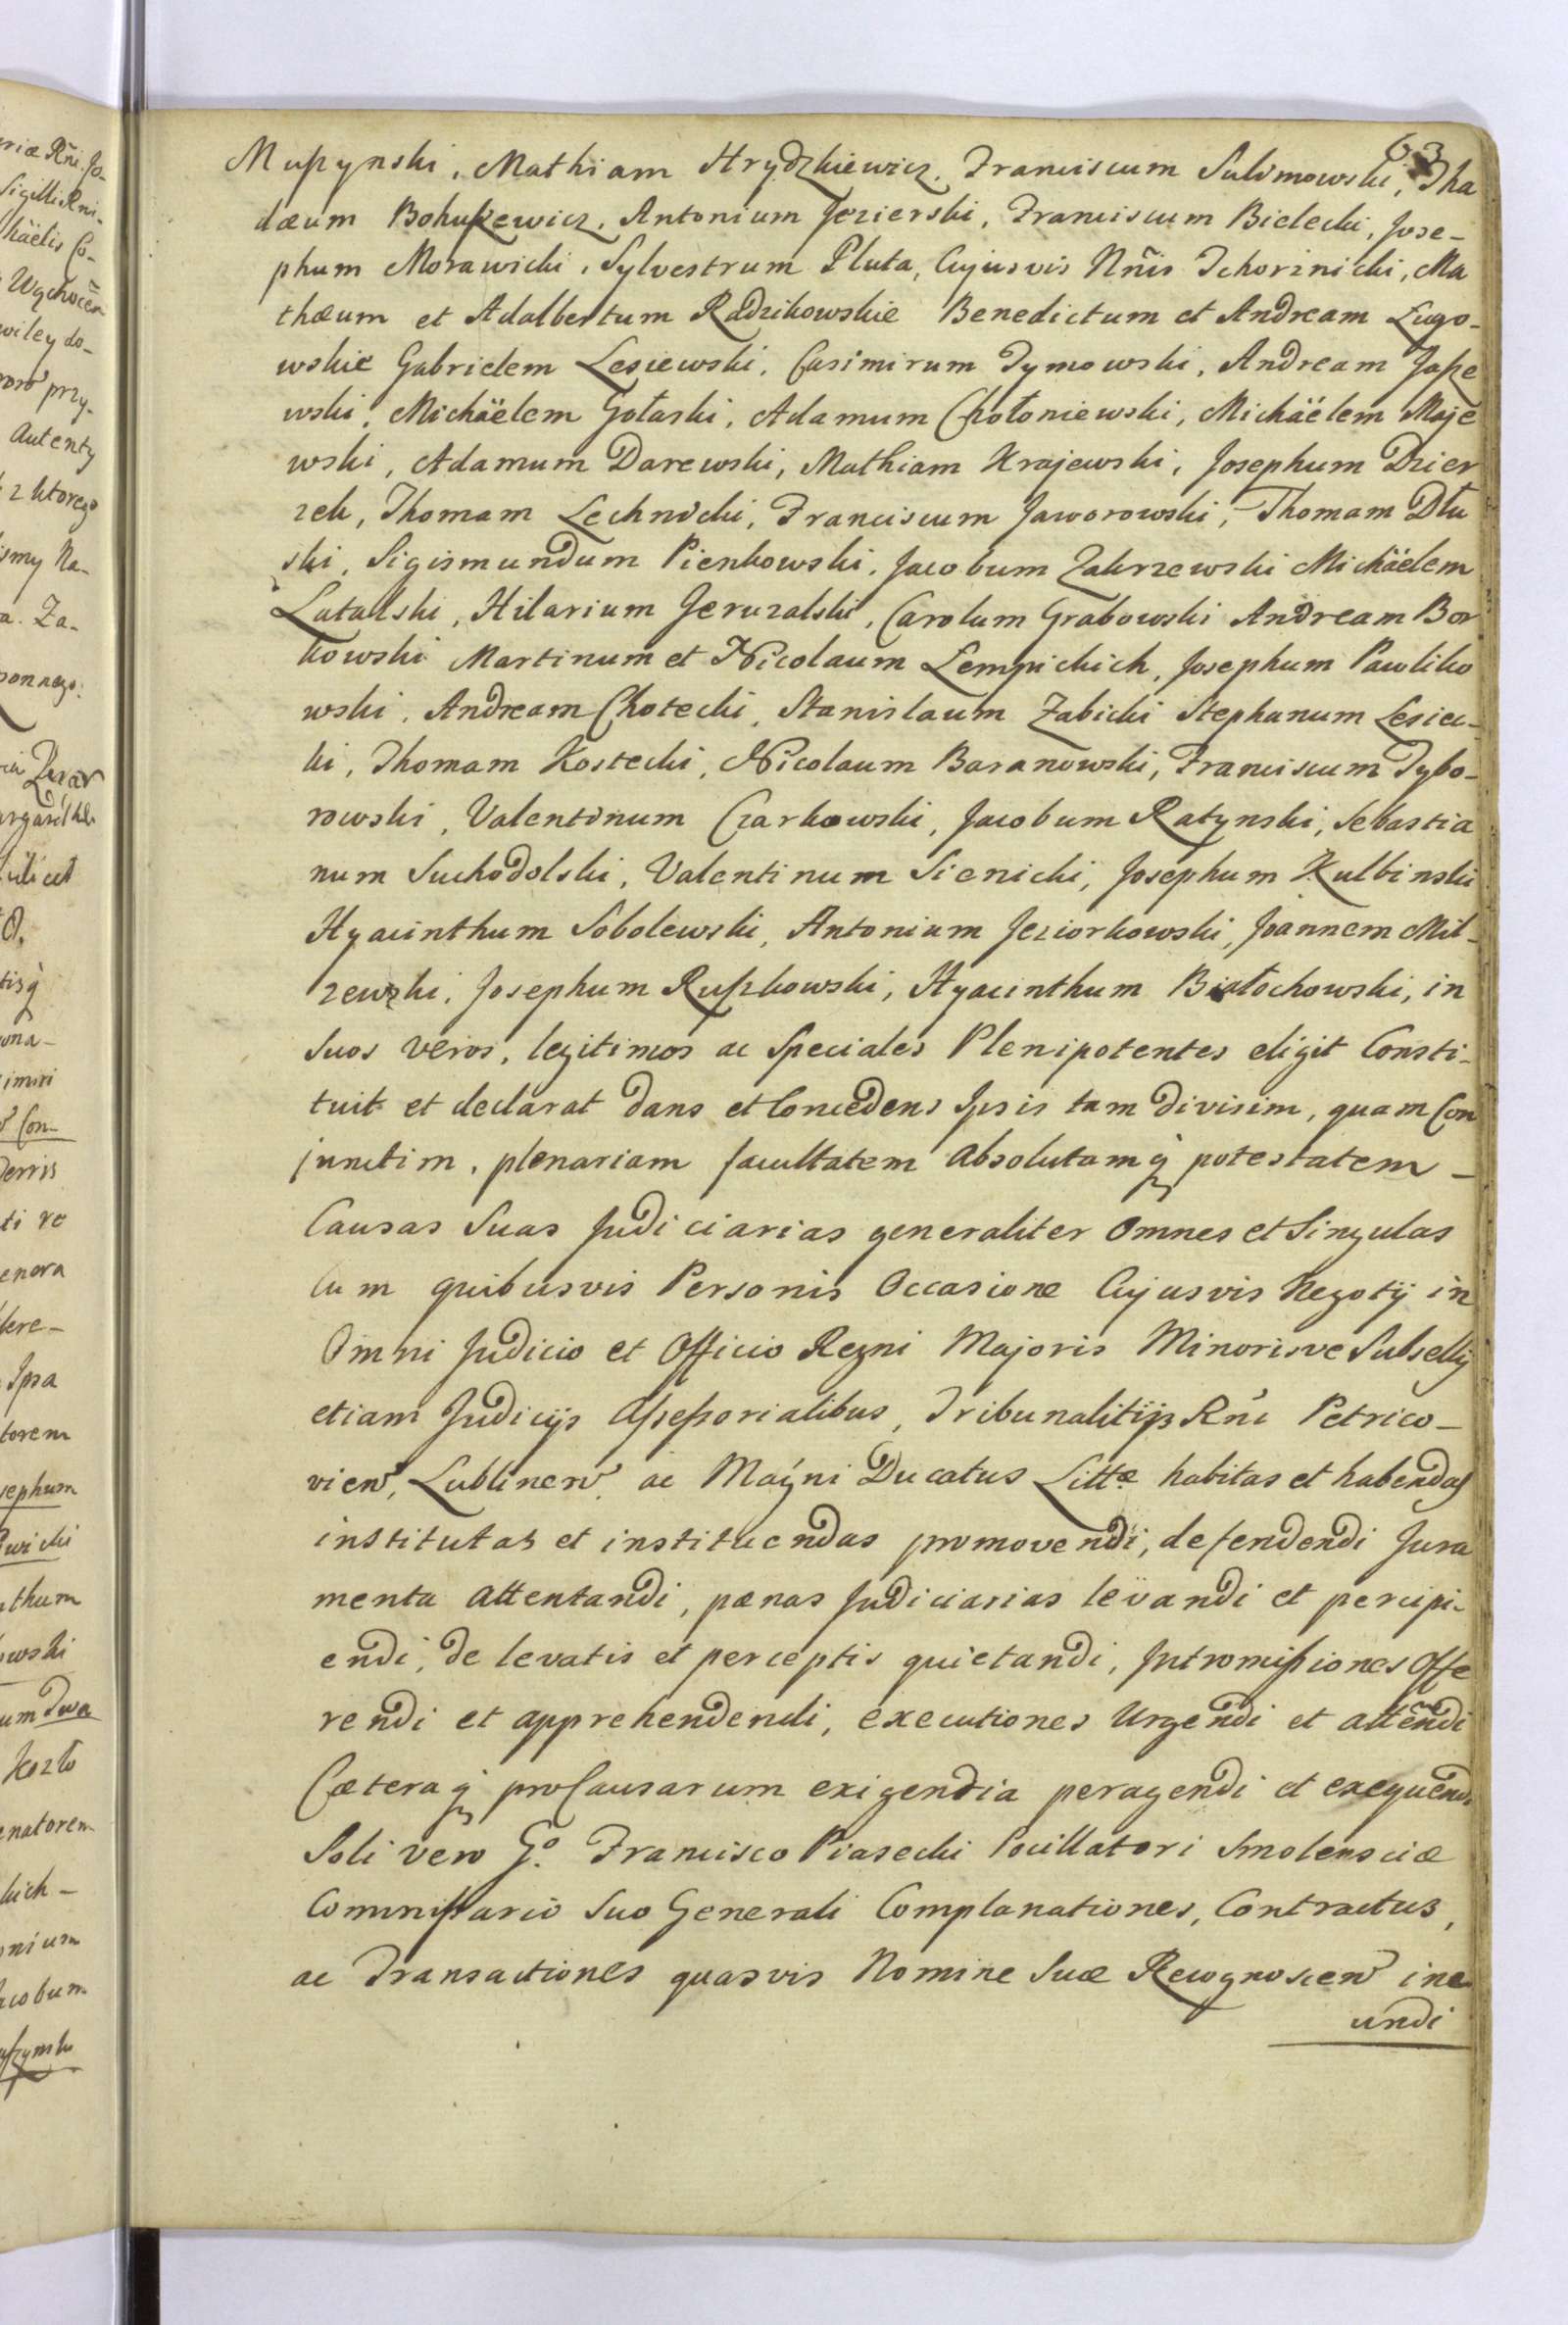 63
Muszynski, Mathiam Hrydzkiewicz, Franciscum Sulimowski, Tha
dæum Bohuszewicz, Antonium Jezierski, Franciscum Bielecki, Jose-
phum Morawicki, Sylvestrum Pluta, Cujusvis Nñis Tchorznicki, Ma
thæum et Adalbertum Radzikowskie Benedictum et Andream Lugo-
wskie Gabrielem Lesiewski, Casimirum Tymowski, Andream Jasze
wski, Michäelem Gołaski, Adamum Chołoniewski, Michäelem Maje
wski, Adamum Darewski, Mathiam Krajewski, Josephum Dzier
zek, Thomam Lechnicki, Franciscum Jaworowski, Thomam Dłu
ski, Sigismundum Pienkowski, Jacobum Zakrzewski Michäelem
Latalski, Hilarium Jeruzalski, Carolum Grabowski Andream Bor
kowski Martinum et Nicolaum Lempickich, Josephum Pawliko
wski, Andream Chotecki, Stanislaum Zabicki Stephanum Lesiec-
ki, Thomam Kostecki, Nicolaum Baranowski, Franciscum Tybo-
rowski, Valentinum Czarkowski, Jacobum Ratynski, Sebastia
num Suchodolski, Valentinum Sienicki, Josephum Kulbinski
Hyacinthum Sobolewski, Antonium Jeziorkowski, Joannem Mil-
zewski, Josephum Ruszkowski, Hyacinthum Białochowski, in
Suos veros, legitimos ac Speciales Plenipotentes eligit Consti-
tuit et declarat dans et Concedens Ipsis tam divisim, quam Con
junctim, plenariam facultatem absolutamq̃ potestatem –
Causas Suas Judiciarias generaliter omnes et Singulas
cum quibusvis Personis Occasione Cujusvis Negotij in
Omni Judicio et Officio Regni Majoris Minorisve Subsellij
etiam Judicijs Assessorialibus, Tribunalitijs Rñi Petrico-
vien, Lublinen, ac Magni Ducatus Littæ habitas et habendas
institutas et instituendas promovendi, defendendi Jura
menta attentandi, pænas Judiciarias levandi et percipi-
endi, de levatis et perceptis quietandi, Intromissiones Offe
rendi et apprehendendi, executiones Urgendi et atteñdi
Cæteraq̃ pro Causarum exigentia peragendi et exequendi
Soli vero Gº. Francisco Piasecki Pocillatori Smolensciæ
Commissario Suo Generali Complanationes, Contractus,
ac Transactiones quasvis Nomine Suæ Recognoscen ine
undi